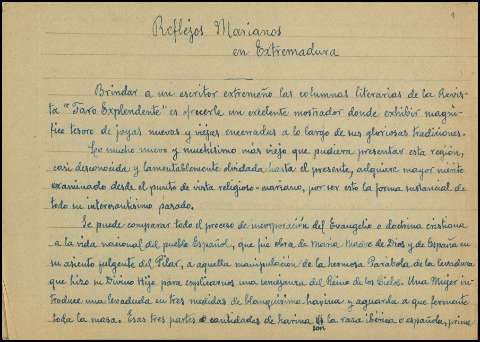 1
Reflejos Marianos
en Extremadura
Brindar a un escritor extremeño las columnas literarias de la Revis-
ta "Faro Explendente" es ofrecerle un excelente mostrador donde exhibir magní-
fico tesoro de joyas nuevas y viejas encerradas a lo largo de sus gloriosas tradiciones.
Lo mucho nuevo y muchísimo más viejo que pudiera presentar esta región,
casi desconocida y lamentablemente olvidada hasta el presente, adquiere mayor interés
examinado desde el punto de vista religioso-mariano, por ser esto la forma sustancial de
todo su interesantísimo pasado.
Se puede comparar todo el proceso de incorporación del Evangelio o doctrina cristiana
a la vida nacional del pueblo Español, que fué obra de María, Madre de Dios y de España en
su asiento fulgente del Pilar, a aquella manipulación de la hermosa Parábola de la levadura
que hizo su Divino Hijo para explicarnos una semejanza del Reino de los Cielos. Una Mujer in-
troduce una levadura en tres medidas de blanquísima harina y aguarda a que fermente
toda la masa. Esas tres partes o cantidades de harina son la raza ibérica o española, prime